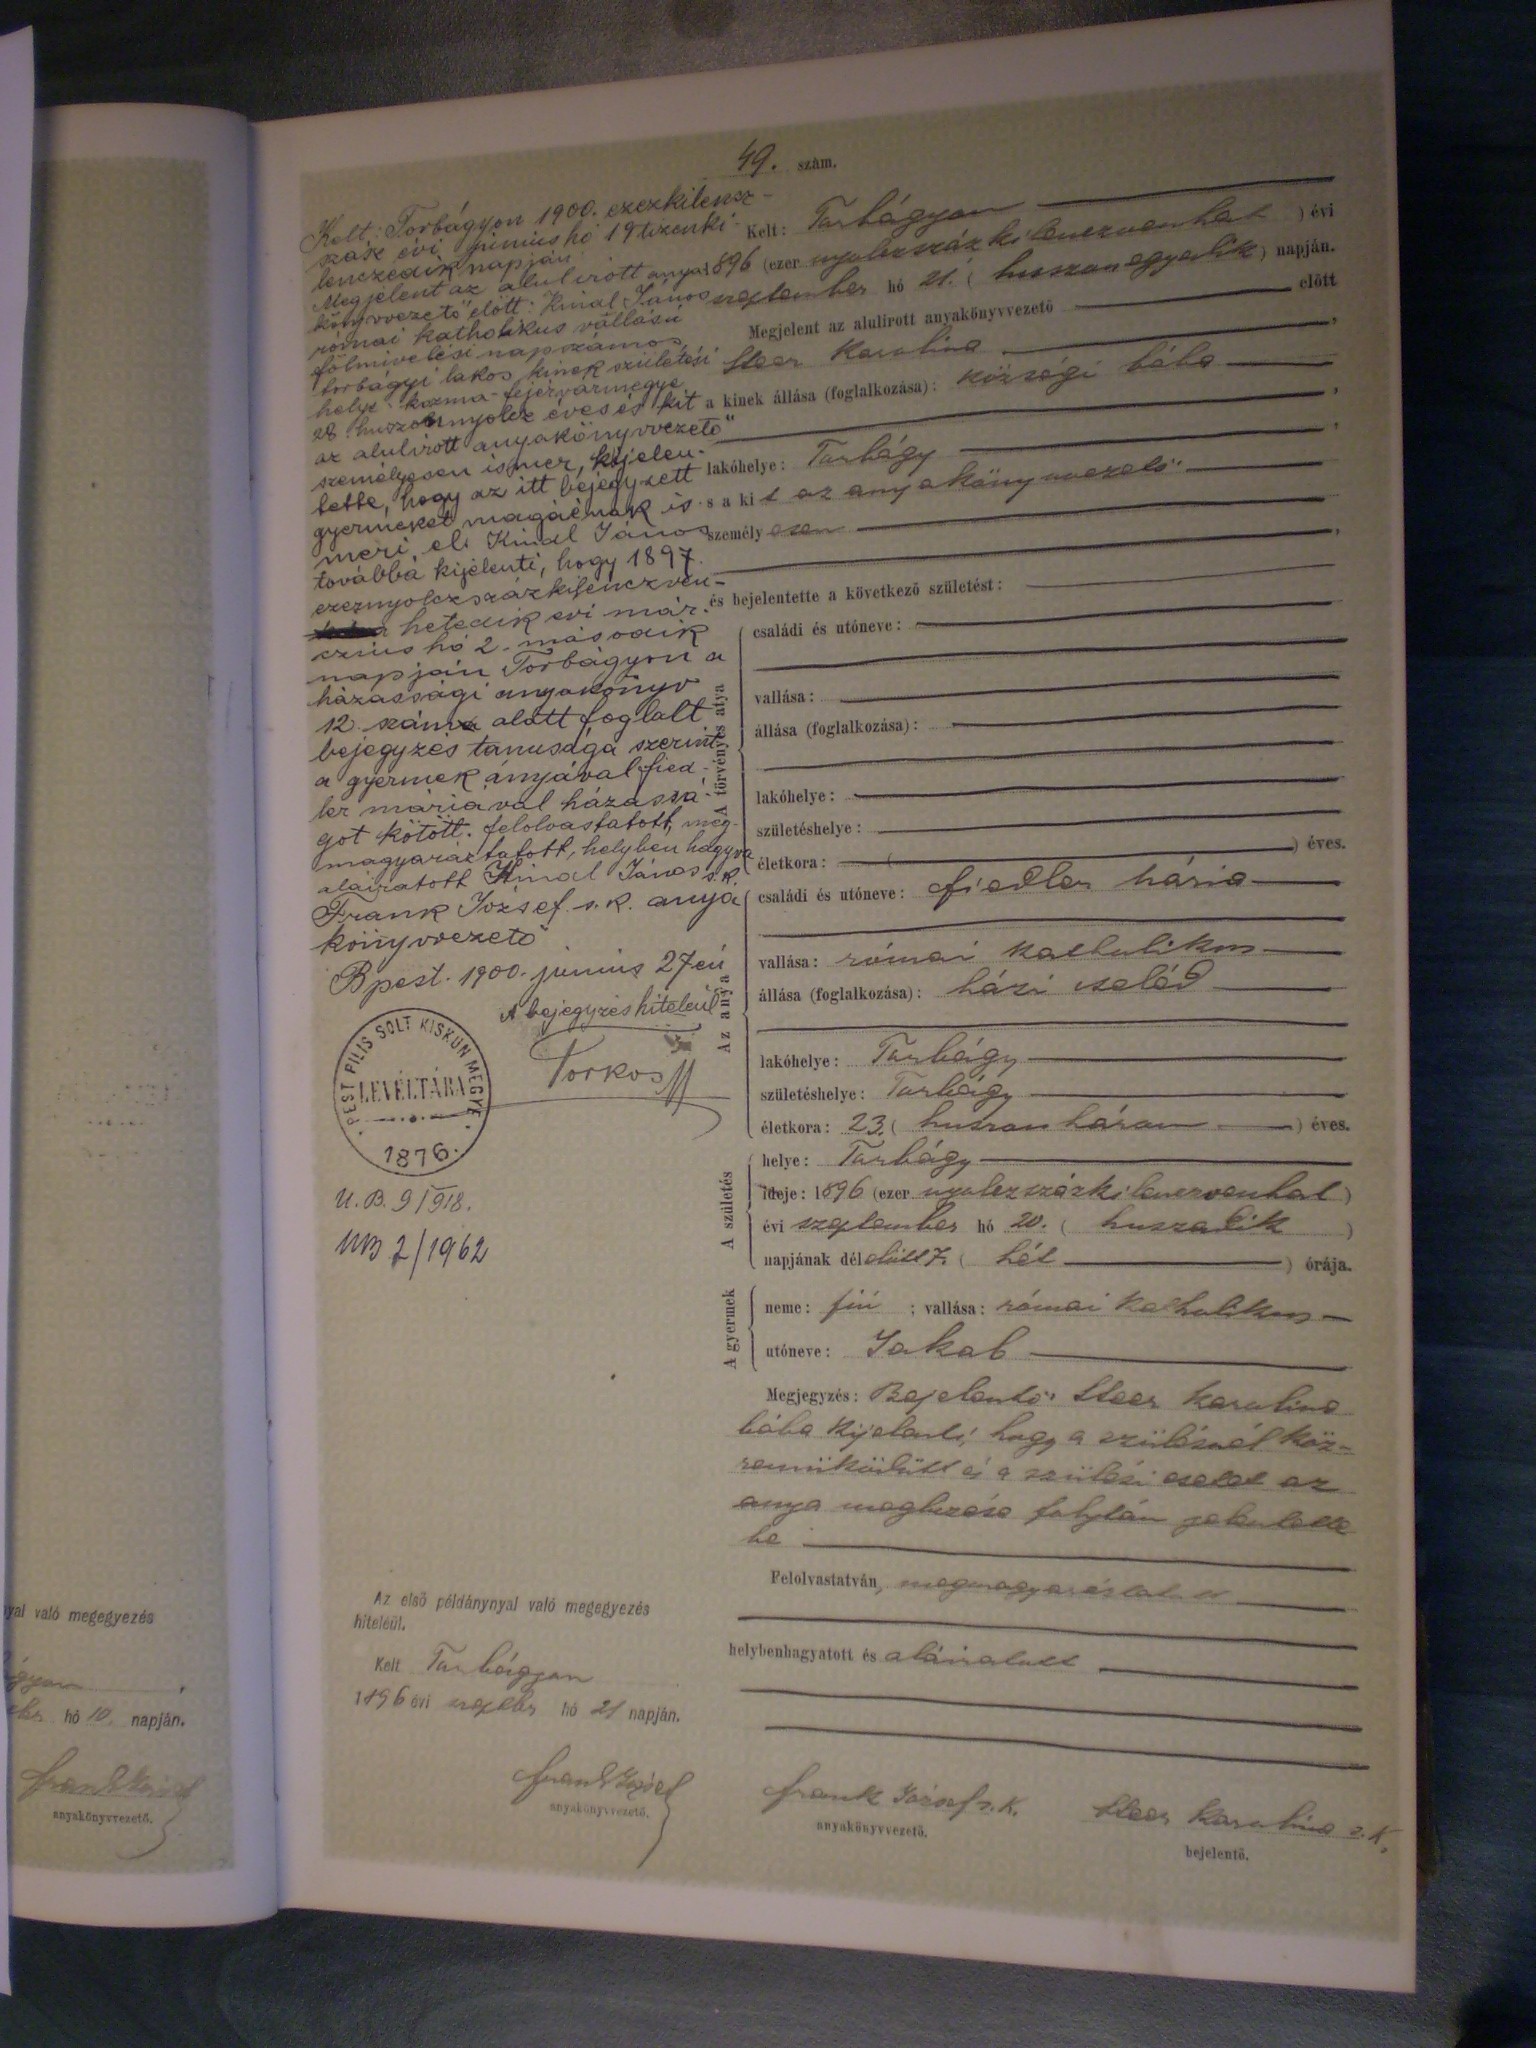 49. szám.
Kelt: Torbágyon 1900. ezerkilencz-
száz évi junius hó 19 tizenki-
lenczedik napján
Megjelent az alulirott anya-
könyvvezető előtt: Kindl János
római katholikus vallású
földmivelési napszámos
torbágyi lakos, kinek születési
helye: kozma-fejérvármegye
28 huszonnyolcz éves és kit
az alulirott anyakönyvvezető
személyesen ismer, kijelen-
tette, hogy az itt bejegyzett
gyermeket magáénak is-
meri el. Kindl János
továbbá kijelenti, hogy 1897.
ezernyolczszázkilenczven-
hetedik évi már-
czius hó 2. második
napján Torbágyon a
házassági anyakönyv
12. száma alatt foglalt
bejegyzés tanusága szerint
a gyermek anyjával fied-
ler máriával házassá-
got kötött. felolvastatott, meg-
magyaráztatott, helyben hagyva
aláiratott Kindl János s.k.
Frank József s.k. anya
könyvvezető
Bpest. 1900. junius 27én
A bejegyzés hiteléül
Torkos
PEST PILIS SOLT KISKUN MEGYE
LEVÉLTÁRA
1876.
U.B. 9/918.
UB 2/1962
Kelt: Torbágyon
1896 (ezer nyolczszázkilenczvenhat) évi
szeptember hó 21. (huszonegyedik) napján.
Megjelent az alulirott anyakönyvvezető előtt
Steer Karolina,
a kinek állása (foglalkozása): községi bába
,
lakóhelye: Torbágy,
s a kit az anyakönyvvezető
személyesen
,
és bejelentette a következő születést:
A törvényes atya
családi és utóneve:
vallása:
állása (foglalkozása):
lakóhelye:
születéshelye:
életkora: ( ) éves.
Az anya
családi és utóneve: fiedler Mária
vallása: római katholikus
állása (foglalkozása): házi cseléd
lakóhelye: Torbágy
születéshelye: Torbágy
életkora: 23. (huszonhárom) éves.
A születés
helye: Torbágy
ideje: 1896 (ezer nyolczszázkilenczvenhat)
évi szeptember hó 20. (huszadik)
napjának délelőtt 7. (hét) órája.
A gyermek
neme: fiú; vallása: római katholikus
utóneve: Jakab
Megjegyzés: Bejelentő Steer Karolina
bába kijelenti, hogy a szülésnél köz-
remüködött és a szülési esetet az
anya megbizása folytán jelentette
be
Felolvastatván, megmagyaráztatott
helybenhagyatott és aláiratott
Az első példánynyal való megegyezés
hiteléül.
Kelt Torbágyon
1896 évi szeptbr hó 21 napján.
Frank József
anyakönyvvezető.
Frank József s.k.
anyakönyvvezető.
Steer Karolina s.k.
bejelentő.
nyal való megegyezés
hó 10. napján.
Frank József
anyakönyvvezető.